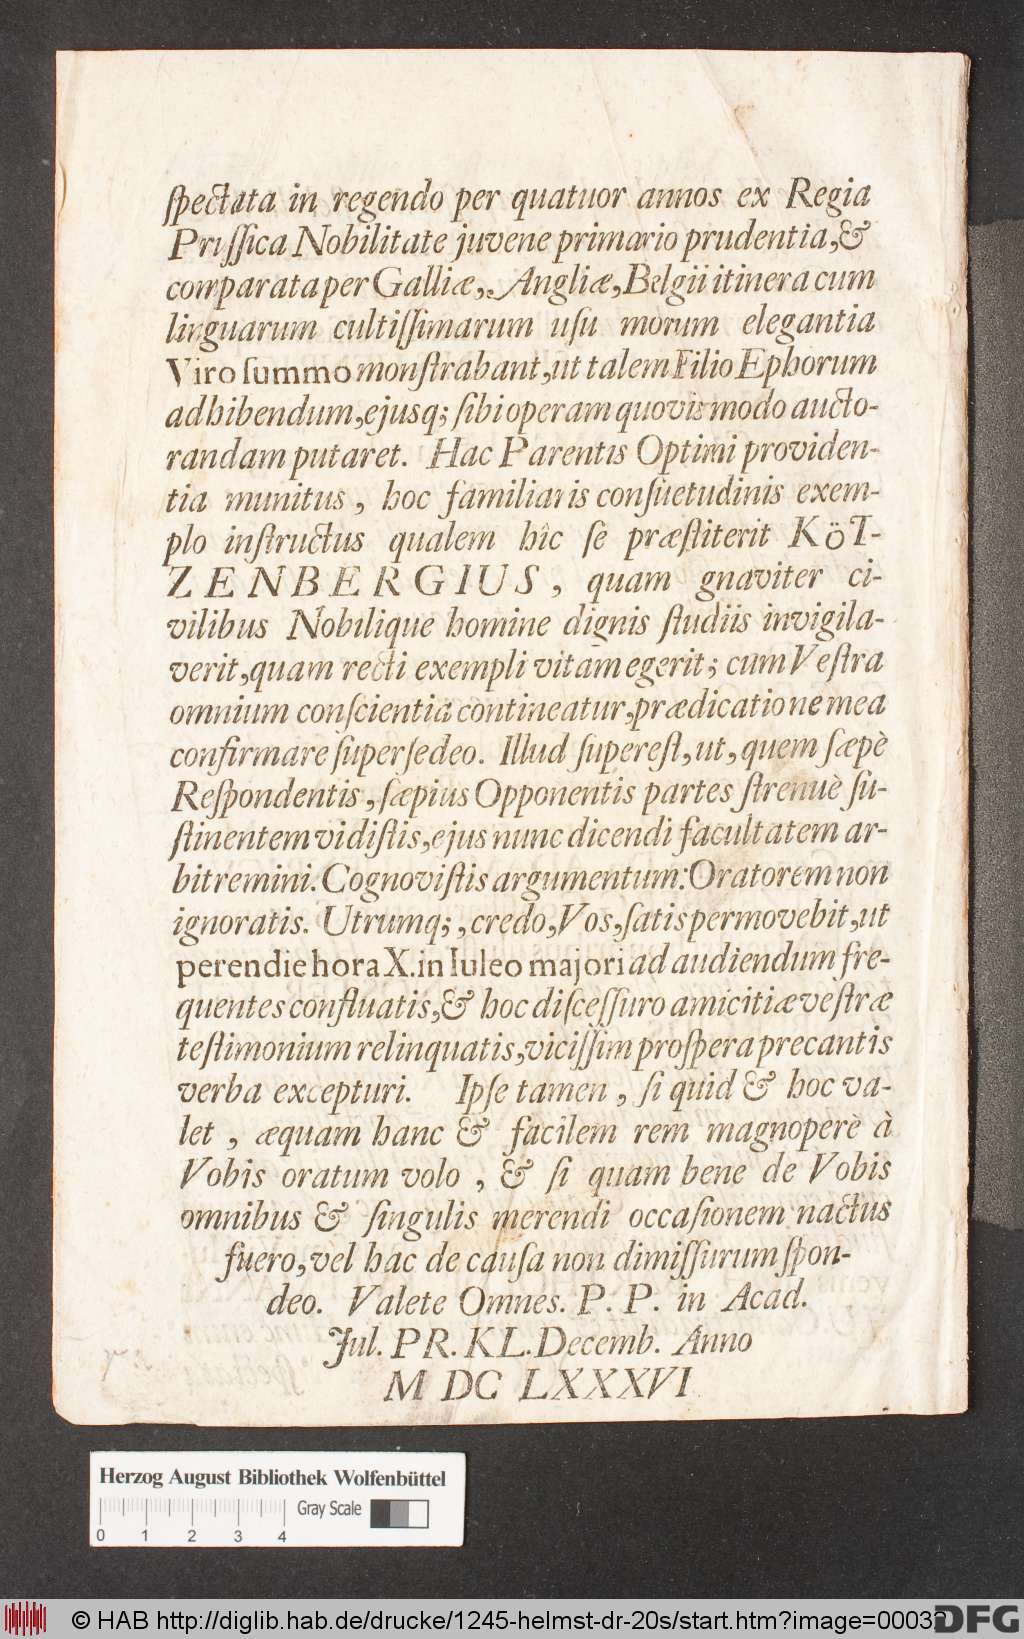 ſpectata in regendo per quatuor annos ex Regia
Pruſſica Nobilitate juvene primario prudentia, &
comparata per Galliæ, Angliæ, Belgii itinera cum
linguarum cultiſſimarum uſu morum elegantia
Viro ſummo monſtrabant, ut talem Filio Ephorum
adhibendum, ejusq; ſibi operam quovis modo aucto-
randam putaret. Hac Parentis Optimi providen-
tia munitus, hoc familiaris conſuetudinis exem-
plo inſtructus qualem hîc ſe præſtiterit KöT-
ZENBERGIUS, quam gnaviter ci-
vilibus Nobilique homine dignis ſtudiis invigila-
verit, quam recti exempli vitam egerit; cum Veſtra
omnium conſcientia contineatur, prædicatione mea
confirmare ſuperſedeo. Illud ſupereſt, ut, quem ſæpè
Reſpondentis, ſæpius Opponentis partes ſtrenuè ſu-
ſtinentem vidiſtis, ejus nunc dicendi facultatem ar-
bitremini. Cognoviſtis argumentum: Oratorem non
ignoratis. Utrumq;, credo, Vos, ſatis permovebit, ut
perendie hora X. in Iuleo majori ad audiendum fre-
quentes confluatis, & hoc diſceſſuro amicitiæ veſtræ
teſtimonium relinquatis, viciſſim proſpera precantis
verba excepturi. Ipſe tamen, ſi quid & hoc va-
let, æquam hanc & facilem rem magnoperè à
Vobis oratum volo, & ſi quam bene de Vobis
omnibus & ſingulis merendi occaſionem nactus
fuero, vel hac de cauſa non dimiſſurum ſpon-
deo. Valete Omnes. P. P. in Acad.
Jul. PR. KL. Decemb. Anno
M DC LXXXVI
Herzog August Bibliothek Wolfenbüttel
Gray Scale
0 1 2 3 4
© HAB http://diglib.hab.de/drucke/1245-helmst-dr-20s/start.htm?image=00032
DFG